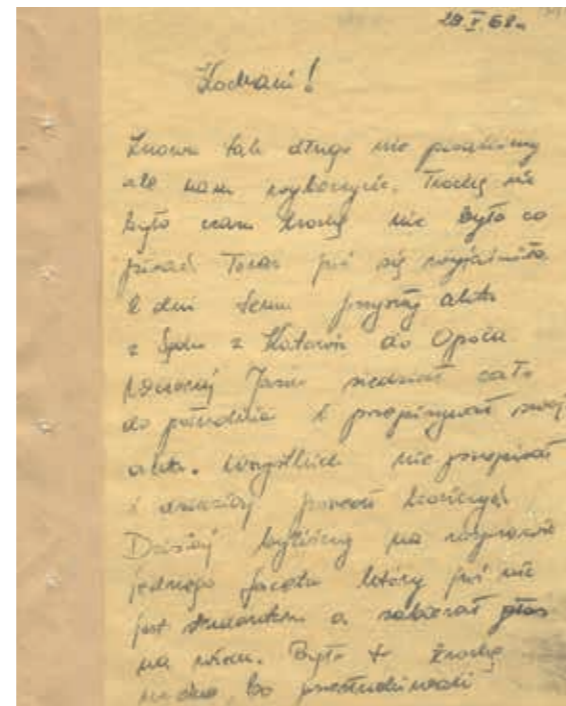 29.V.68r.
Kochani!
Znowu tak długo nie pisaliśmy
ale nam wybaczycie. Trochę nie
było czasu trochę nie było co
pisać. Teraz już się wyjaśniło
2 dni temu przyszły akta
z Sądu z Katowic do Opola
Jasiu siedział cało
do południa i przepisywał swoj
akta. Wszystkich nie przepisał
i dzisiaj poszedł kończyć
Dzisiaj byliśmy na rozprawie
jednego faceta który już nie
jest studentem a zabierał głos
na wiecu. Było to trochę
nudne, bo